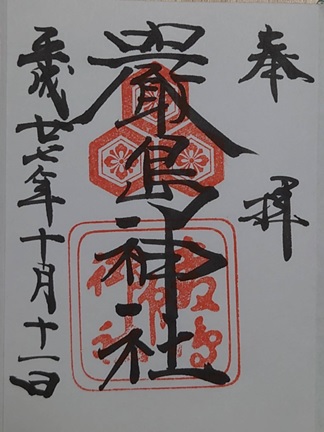 奉拝
嚴島神社
嚴島神社
平成廿七年十月十一日